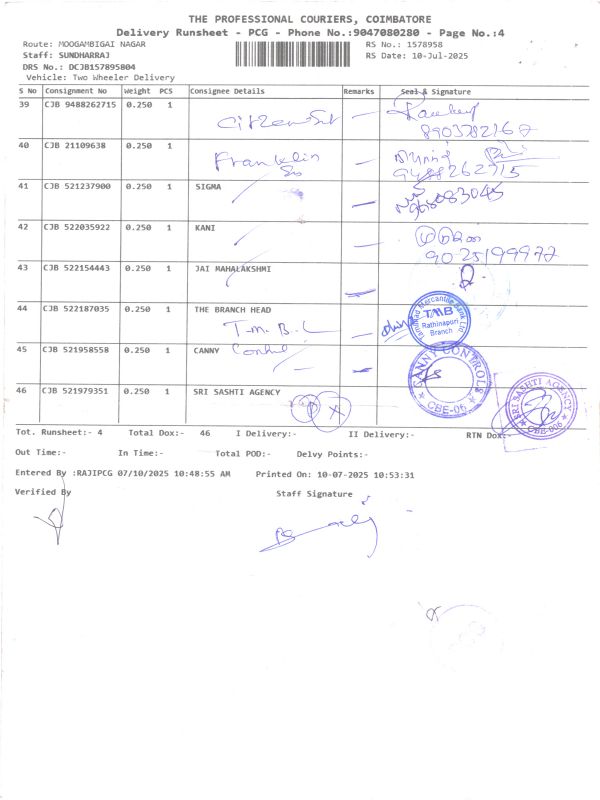 THE PROFESSIONAL COURIERS, COIMBATORE
Delivery Runsheet - PCG - Phone No.:9047080280 - Page No.:4
Route: MOOGAMBIGAI NAGAR
RS No.: 1578958
Staff: SUNDHARRAJ
RS Date: 10-Jul-2025
DRS No.: DCJB157895804
Vehicle: Two Wheeler Delivery
S No Consignment No Weight PCS Consignee Details Remarks Seal & Signature
39 CJB 9488262715 0.250 1
8903782167
40 CJB 21109638 0.250 1 Franklin
9488262715
41 CJB 521237900 0.250 1 SIGMA
42 CJB 522035922 0.250 1 KANI
9025199977
43 CJB 522154443 0.250 1 JAI MAHALAKSHMI
44 CJB 522187035 0.250 1 THE BRANCH HEAD
T.M.B.L
Tamilnad Mercantile Bank Ltd
TMB
Rathinapuri
Branch
45 CJB 521958558 0.250 1 CANNY
CANNY CONTROLS
CBE-06
46 CJB 521979351 0.250 1 SRI SASHTI AGENCY
SRI SASHTI AGENCY
CBE-006
Tot. Runsheet:- 4 Total Dox:- 46 I Delivery:- II Delivery:- RTN Dox:-
Out Time:- In Time:- Total POD:- Delvy Points:-
Entered By :RAJIPCG 07/10/2025 10:48:55 AM Printed On: 10-07-2025 10:53:31
Verified By Staff Signature